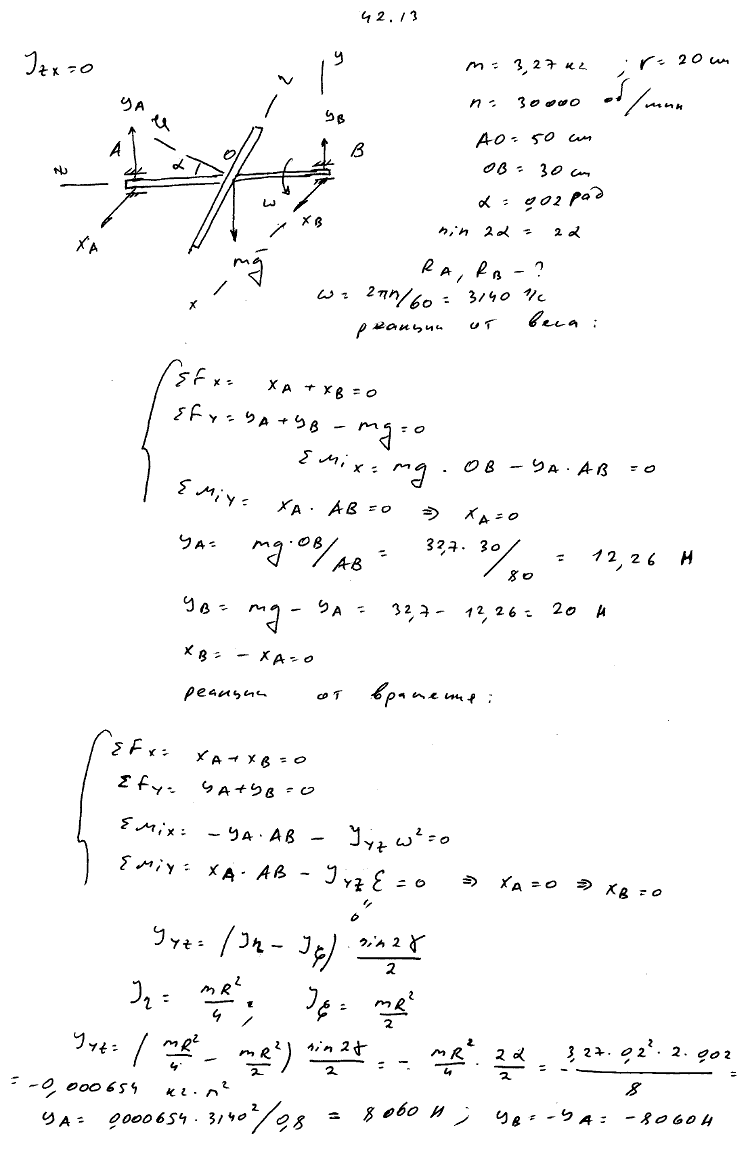 42.13
J_zx = 0
m = 3,27 кг ; r = 20 см
n = 30000 об/мин
AO = 50 см
OB = 30 см
α = 0,02 рад
sin 2α = 2α
R_A, R_B - ?
y
y_A
y_B
A
O
B
α
z
ω
x_A
x_B
mg
x
ω = 2πn/60 = 3140 1/с
реакции от веса :
ΣF_x = x_A + x_B = 0
ΣF_y = y_A + y_B - mg = 0
ΣM_ix = mg · OB - y_A · AB = 0
ΣM_iy = x_A · AB = 0 ⇒ x_A = 0
y_A = mg·OB/AB = 32,7·30/80 = 12,26 Н
y_B = mg - y_A = 32,7 - 12,26 = 20 Н
x_B = - x_A = 0
реакции от вращения :
ΣF_x = x_A + x_B = 0
ΣF_y = y_A + y_B = 0
ΣM_ix = - y_A · AB - J_yz ω² = 0
ΣM_iy = x_A · AB - J_yz ε = 0 ⇒ x_A = 0 ⇒ x_B = 0
0
J_yz = (J_η - J_ξ) · sin 2γ / 2
J_η = mR²/4 ; J_ξ = mR²/2
J_yz = (mR²/4 - mR²/2) sin 2γ / 2 = - mR²/4 · 2α/2 = - 3,27 · 0,2² · 2 · 0,02 / 8 =
= -0,000654 кг·м²
y_A = 0,000654 · 3140²/0,8 = 8060 Н ; y_B = -y_A = -8060 Н